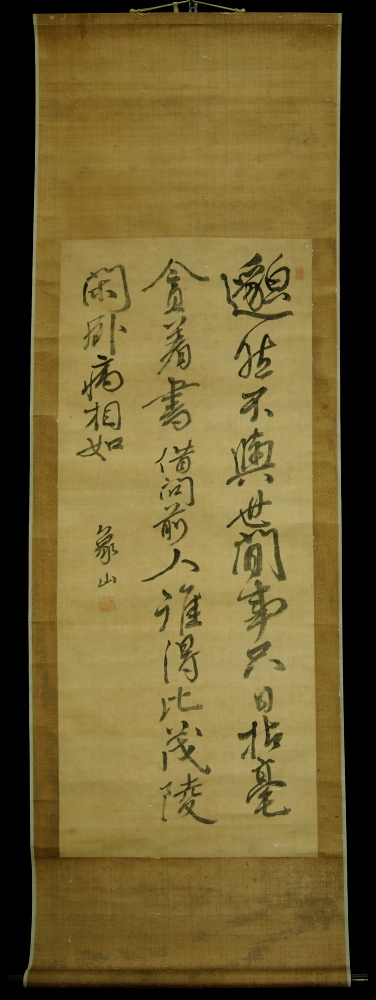 邈然不與世間事只日拈毫
貪著書借問前人誰得比茂陵
閑卧病相如
象山